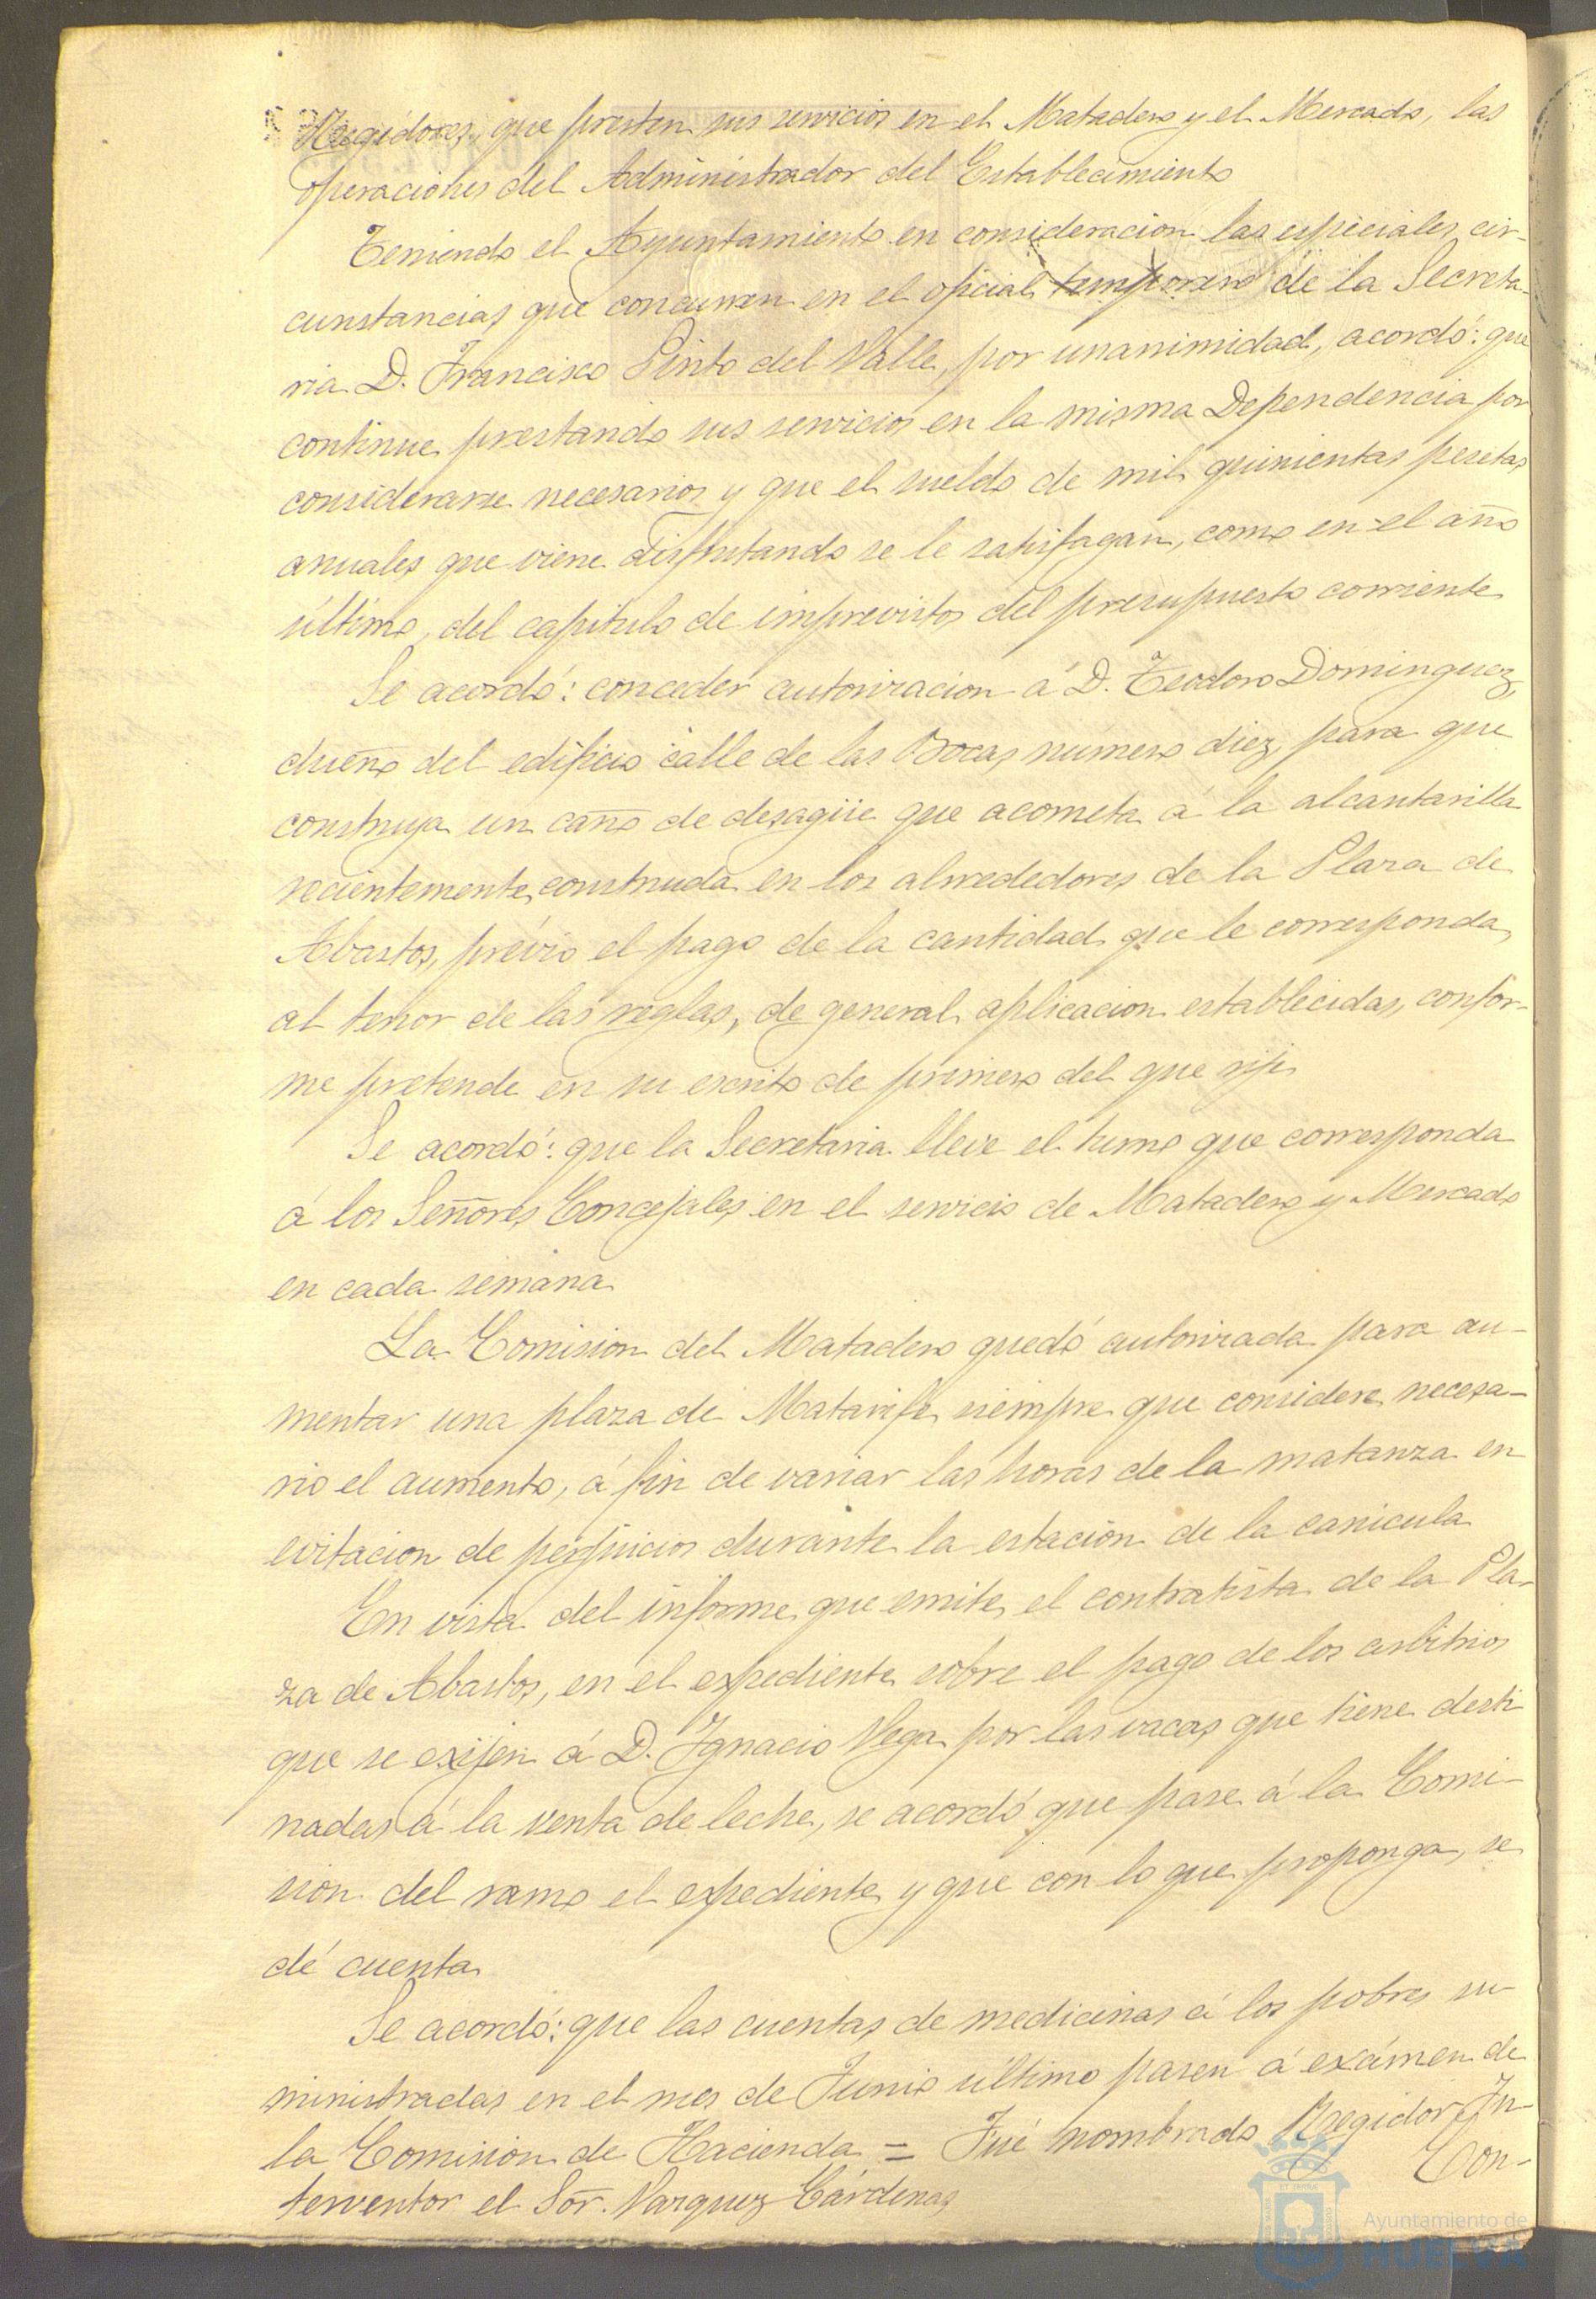 Regidores, que presten sus servicios en el Matadero y el Mercado, las
operaciones del Administrador del Establecimiento
Teniendo el Ayuntamiento en consideracion las especiales cir-
cunstancias que concurren en el oficial temporero de la Secreta-
ria D. Francisco Pinto del Valle, por unanimidad, acordó: que
continue prestando sus servicios en la misma Dependencia por
considerarse necesarios y que el sueldo de mil quinientas pesetas
anuales que viene disfrutando se le satisfagan, como en el año
último, del capitulo de imprevistos del presupuesto corriente
Se acordó: conceder autorizacion á D. Teodoro Dominguez,
dueño del edificio calle de las Bocas numero diez, para que
construya un caño de desagüe que acometa á la alcantarilla
recientemente construida en los alrededores de la Plaza de
Abastos, prévio el pago de la cantidad que le corresponda,
al tenor de las reglas, de general aplicacion establecidas, confor-
me pretende en su escrito de primero del que rije
Se acordó: que la Secretaria lleve el turno que corresponda
á los Señores Concejales en el servicio de Matadero y Mercado
en cada semana
La Comision del Matadero quedó autorizada para au-
mentar una plaza de Matarife, siempre que considere necesa-
rio el aumento, á fin de variar las horas de la matanza en
evitacion de perjuicios durante la estación de la canicula
En vista del informe que emite el contratista de la Pla-
za de Abastos, en el expediente sobre el pago de los arbitrios
que se exijen á D. Ygnacio Vega por las vacas que tiene desti
nadas á la venta de leche, se acordó que pase á la Comi-
sion del ramo el expediente y que con lo que proponga, se
dé cuenta
Se acordó: que las cuentas de medicinas á los pobres su-
ministradas en el mes de Junio último pasen á exámen de
la Comision de Hacienda = Fué nombrado Regidor In-
terventor el Sor. Vazquez Cárdenas
Con-
Ayuntamiento de
HUELVA